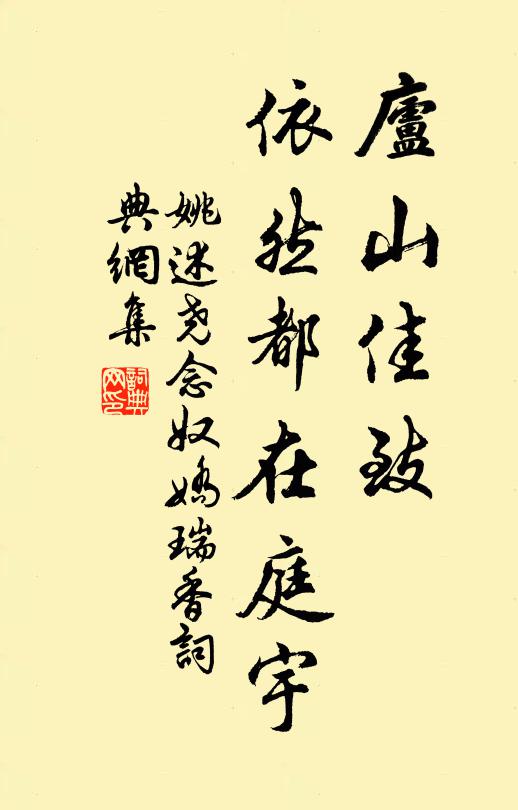 廬山佳致
依然都在庭宇
姚述尧念奴嬌瑞香詞
典網集
詞典網印